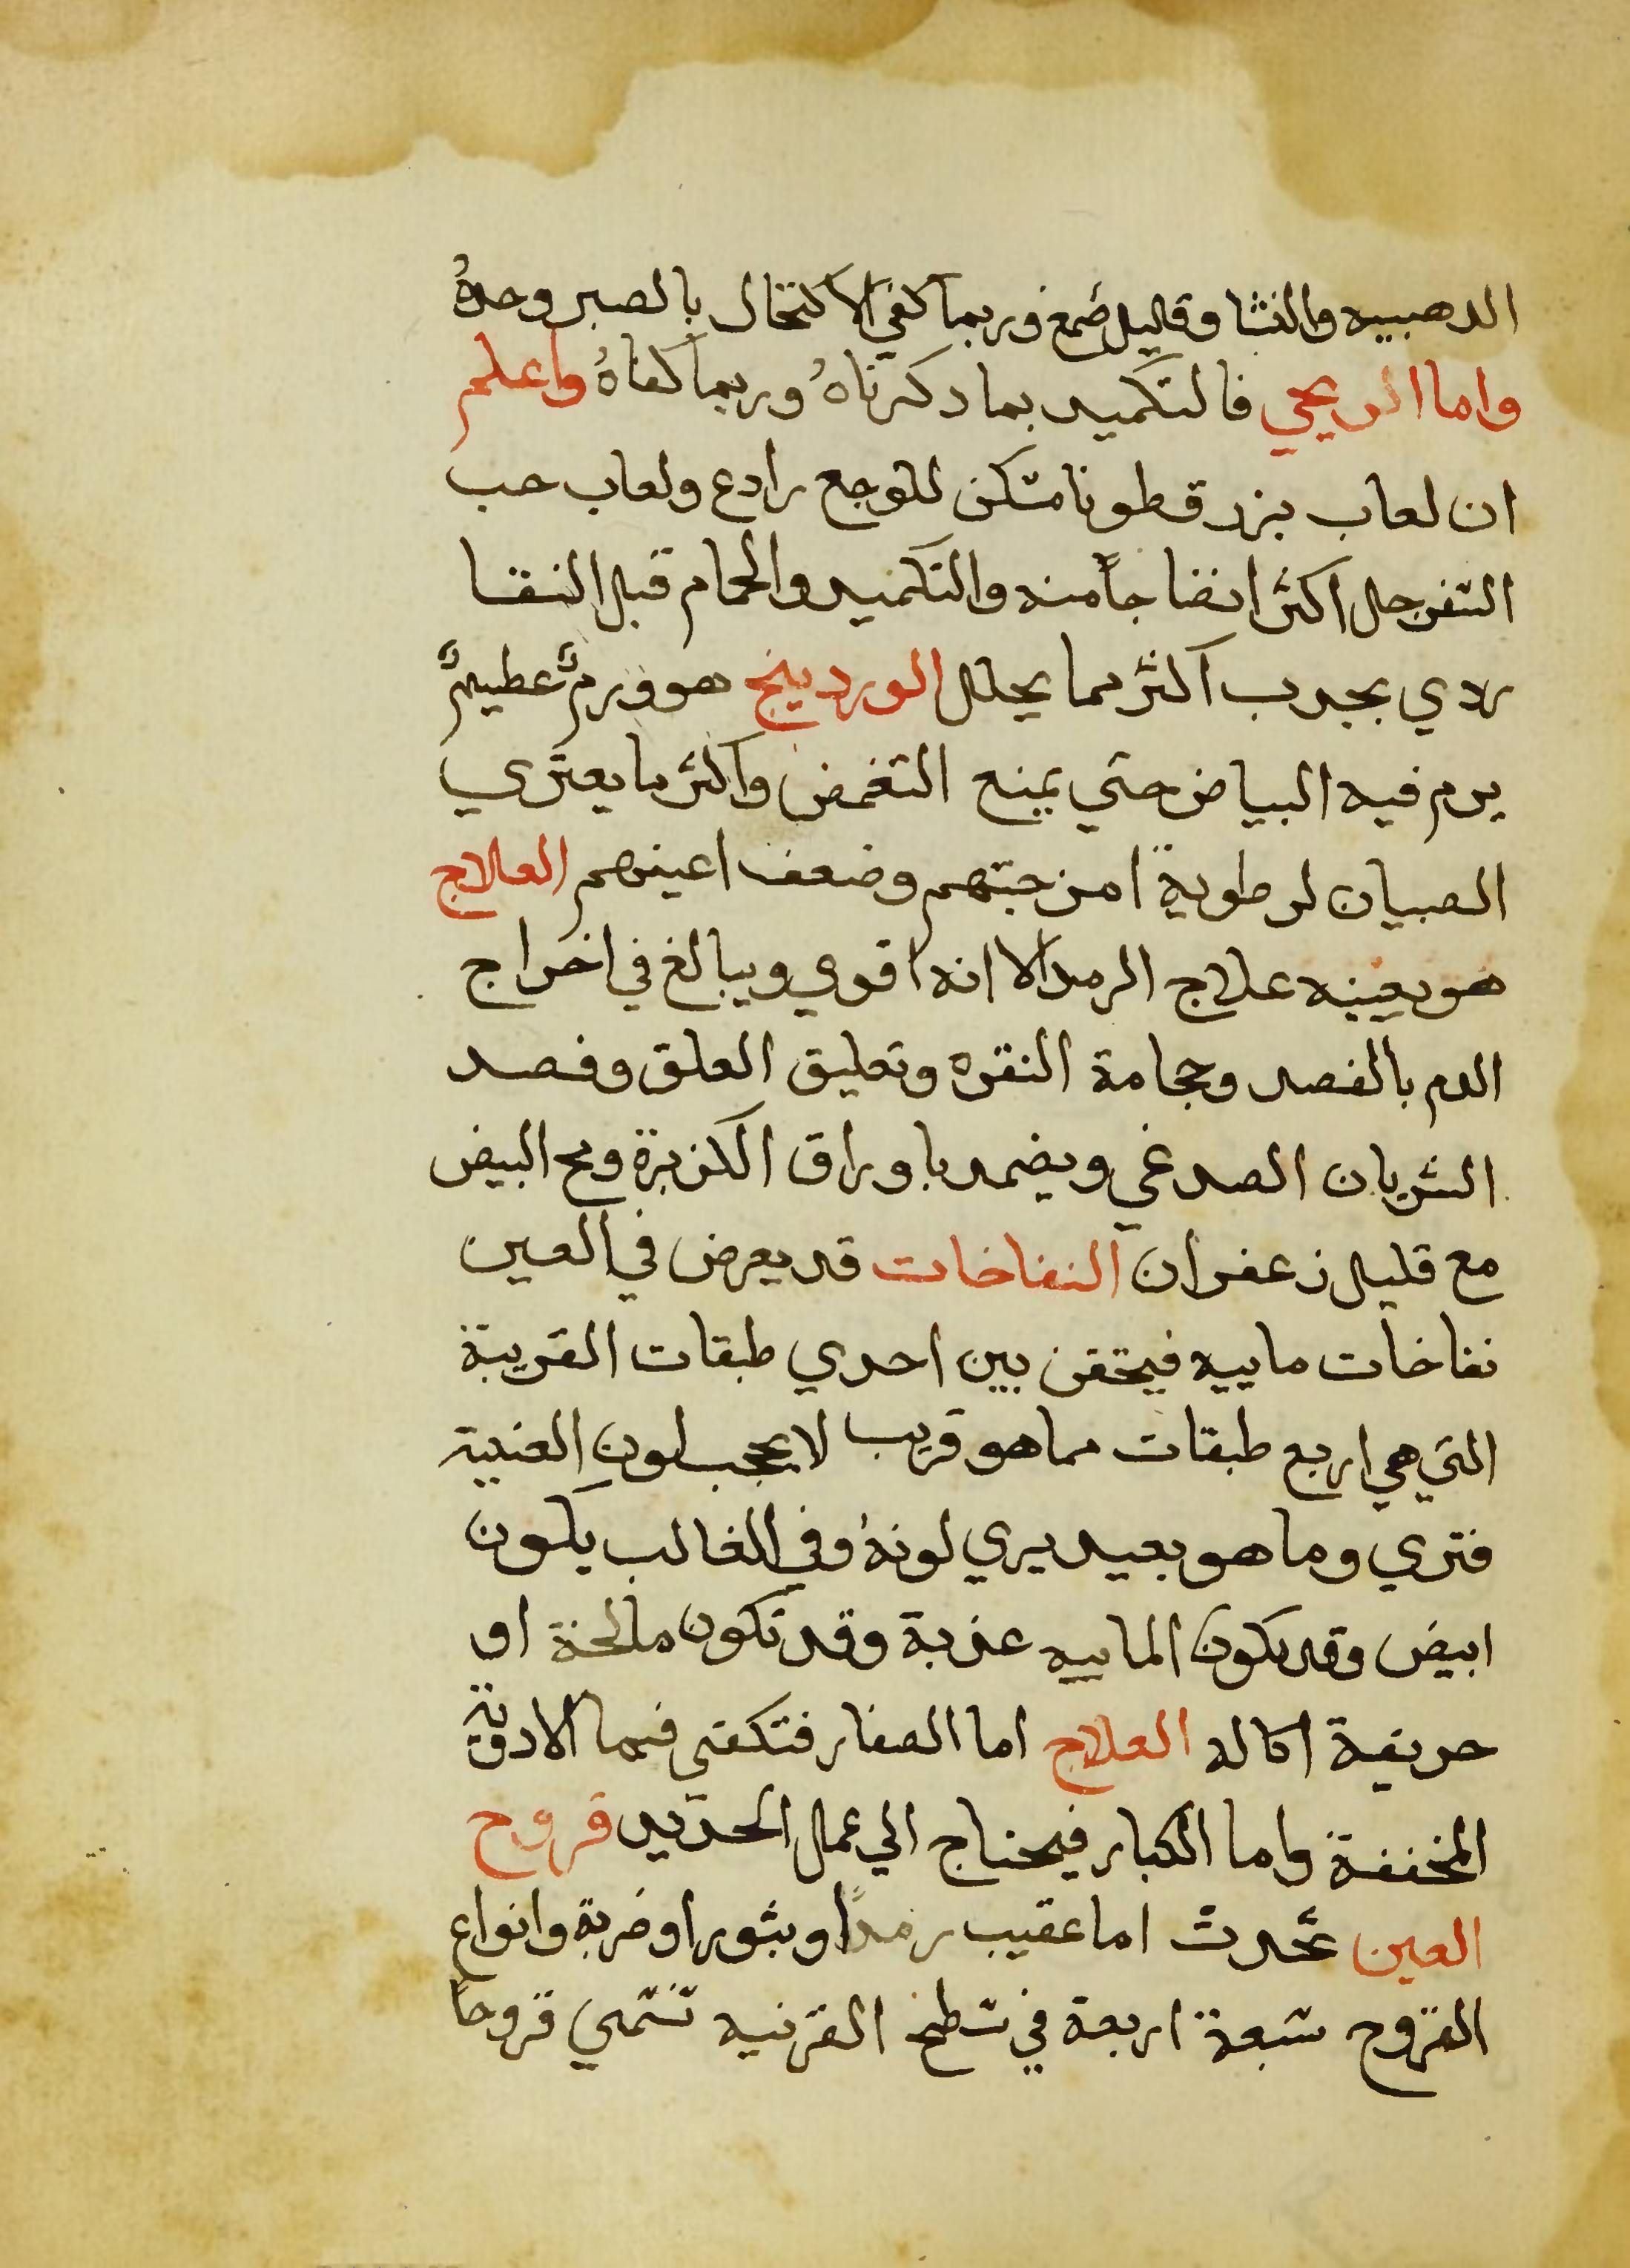 الدهبيه والنشا وقليل صمغ وربما كفي الاكتحال بالصبر وحدهُ
واما الريحي فالتكميد بما دكرناهُ وربما كفاهُ واعلم
ان لعاب بزر قطونا مسكن للوجع رادع ولعاب حب
السفرجل اكثر انضاجاً منه والتكميد والحمام قبل النقا
ردي بجدب اكثر مما يحلل الوردينج هو ورمٌ عطيمٌ
يرم فيه البياض حتي يمنع التغمض واكثر ما يعتري
الصبيان لرطوبة امزجتهم وضعف اعينهم العلاج
هو بعينه علاج الرمد الا انه اقوي ويبالغ في اخراج
الدم بالفصد وحجامة النقره وتعليق العلق وفصد
الشريان الصدغي ويضمد باوراق الكزبرة ومح البيض
مع قليل زعفران النفاخات قد يعرض في العين
نفاخات ماييه فيحتقن بين احدي طبقات القريبة
التي هي اربع طبقات مما هو قريب لا يحجب لون العنبية
فتري وما هو بعيد يري لونهُ وفي الغالب يكون
ابيض وقد يكون الماييه عذبة وقد تكون مالحة او
حريفة اكاله العلاج اما الصغار فتكفي فيها الادوية
المخففة واما الكبار فيحتاج الي عمل الحديد قروح
العين تحدث اما عقيب رمداً وبثور او ضربة وانواع
القروح سبعة اربعة في سطح القرنيه تسمي قروحاً